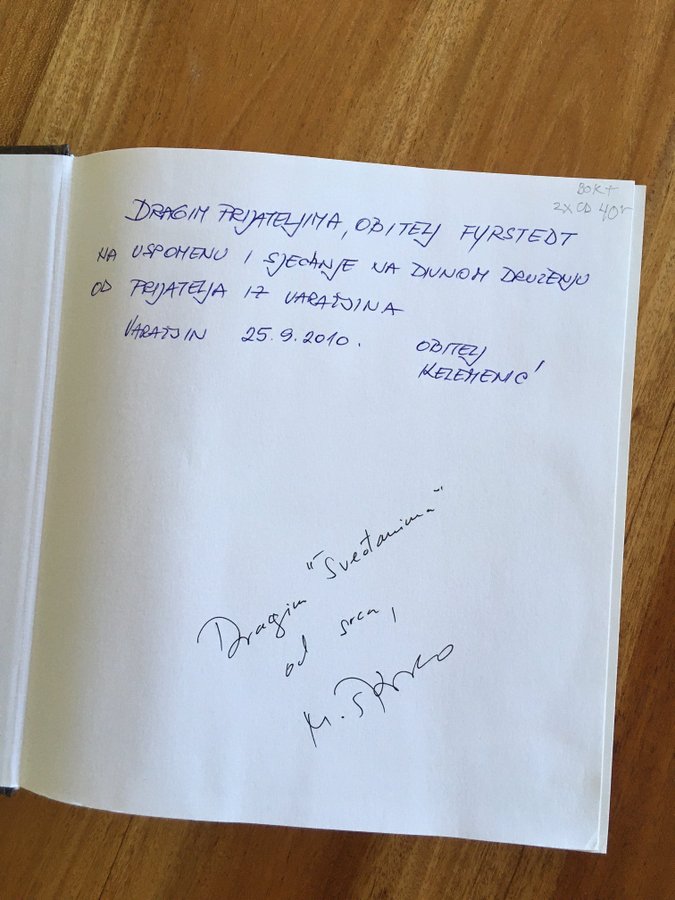 80kt
2xCD 40:-
DRAGIM PRIJATELJIMA, OBITELJ FYRSTEDT
NA USPOMENU I SJEĆANJE NA DIVNOM DRUŽENJU
OD PRIJATELJA IZ VARAŽDINA
VARAŽDIN 25.9.2010. OBITELJ
KELEMENIĆ
Dragim "Šveđanima"
od srca,
M.